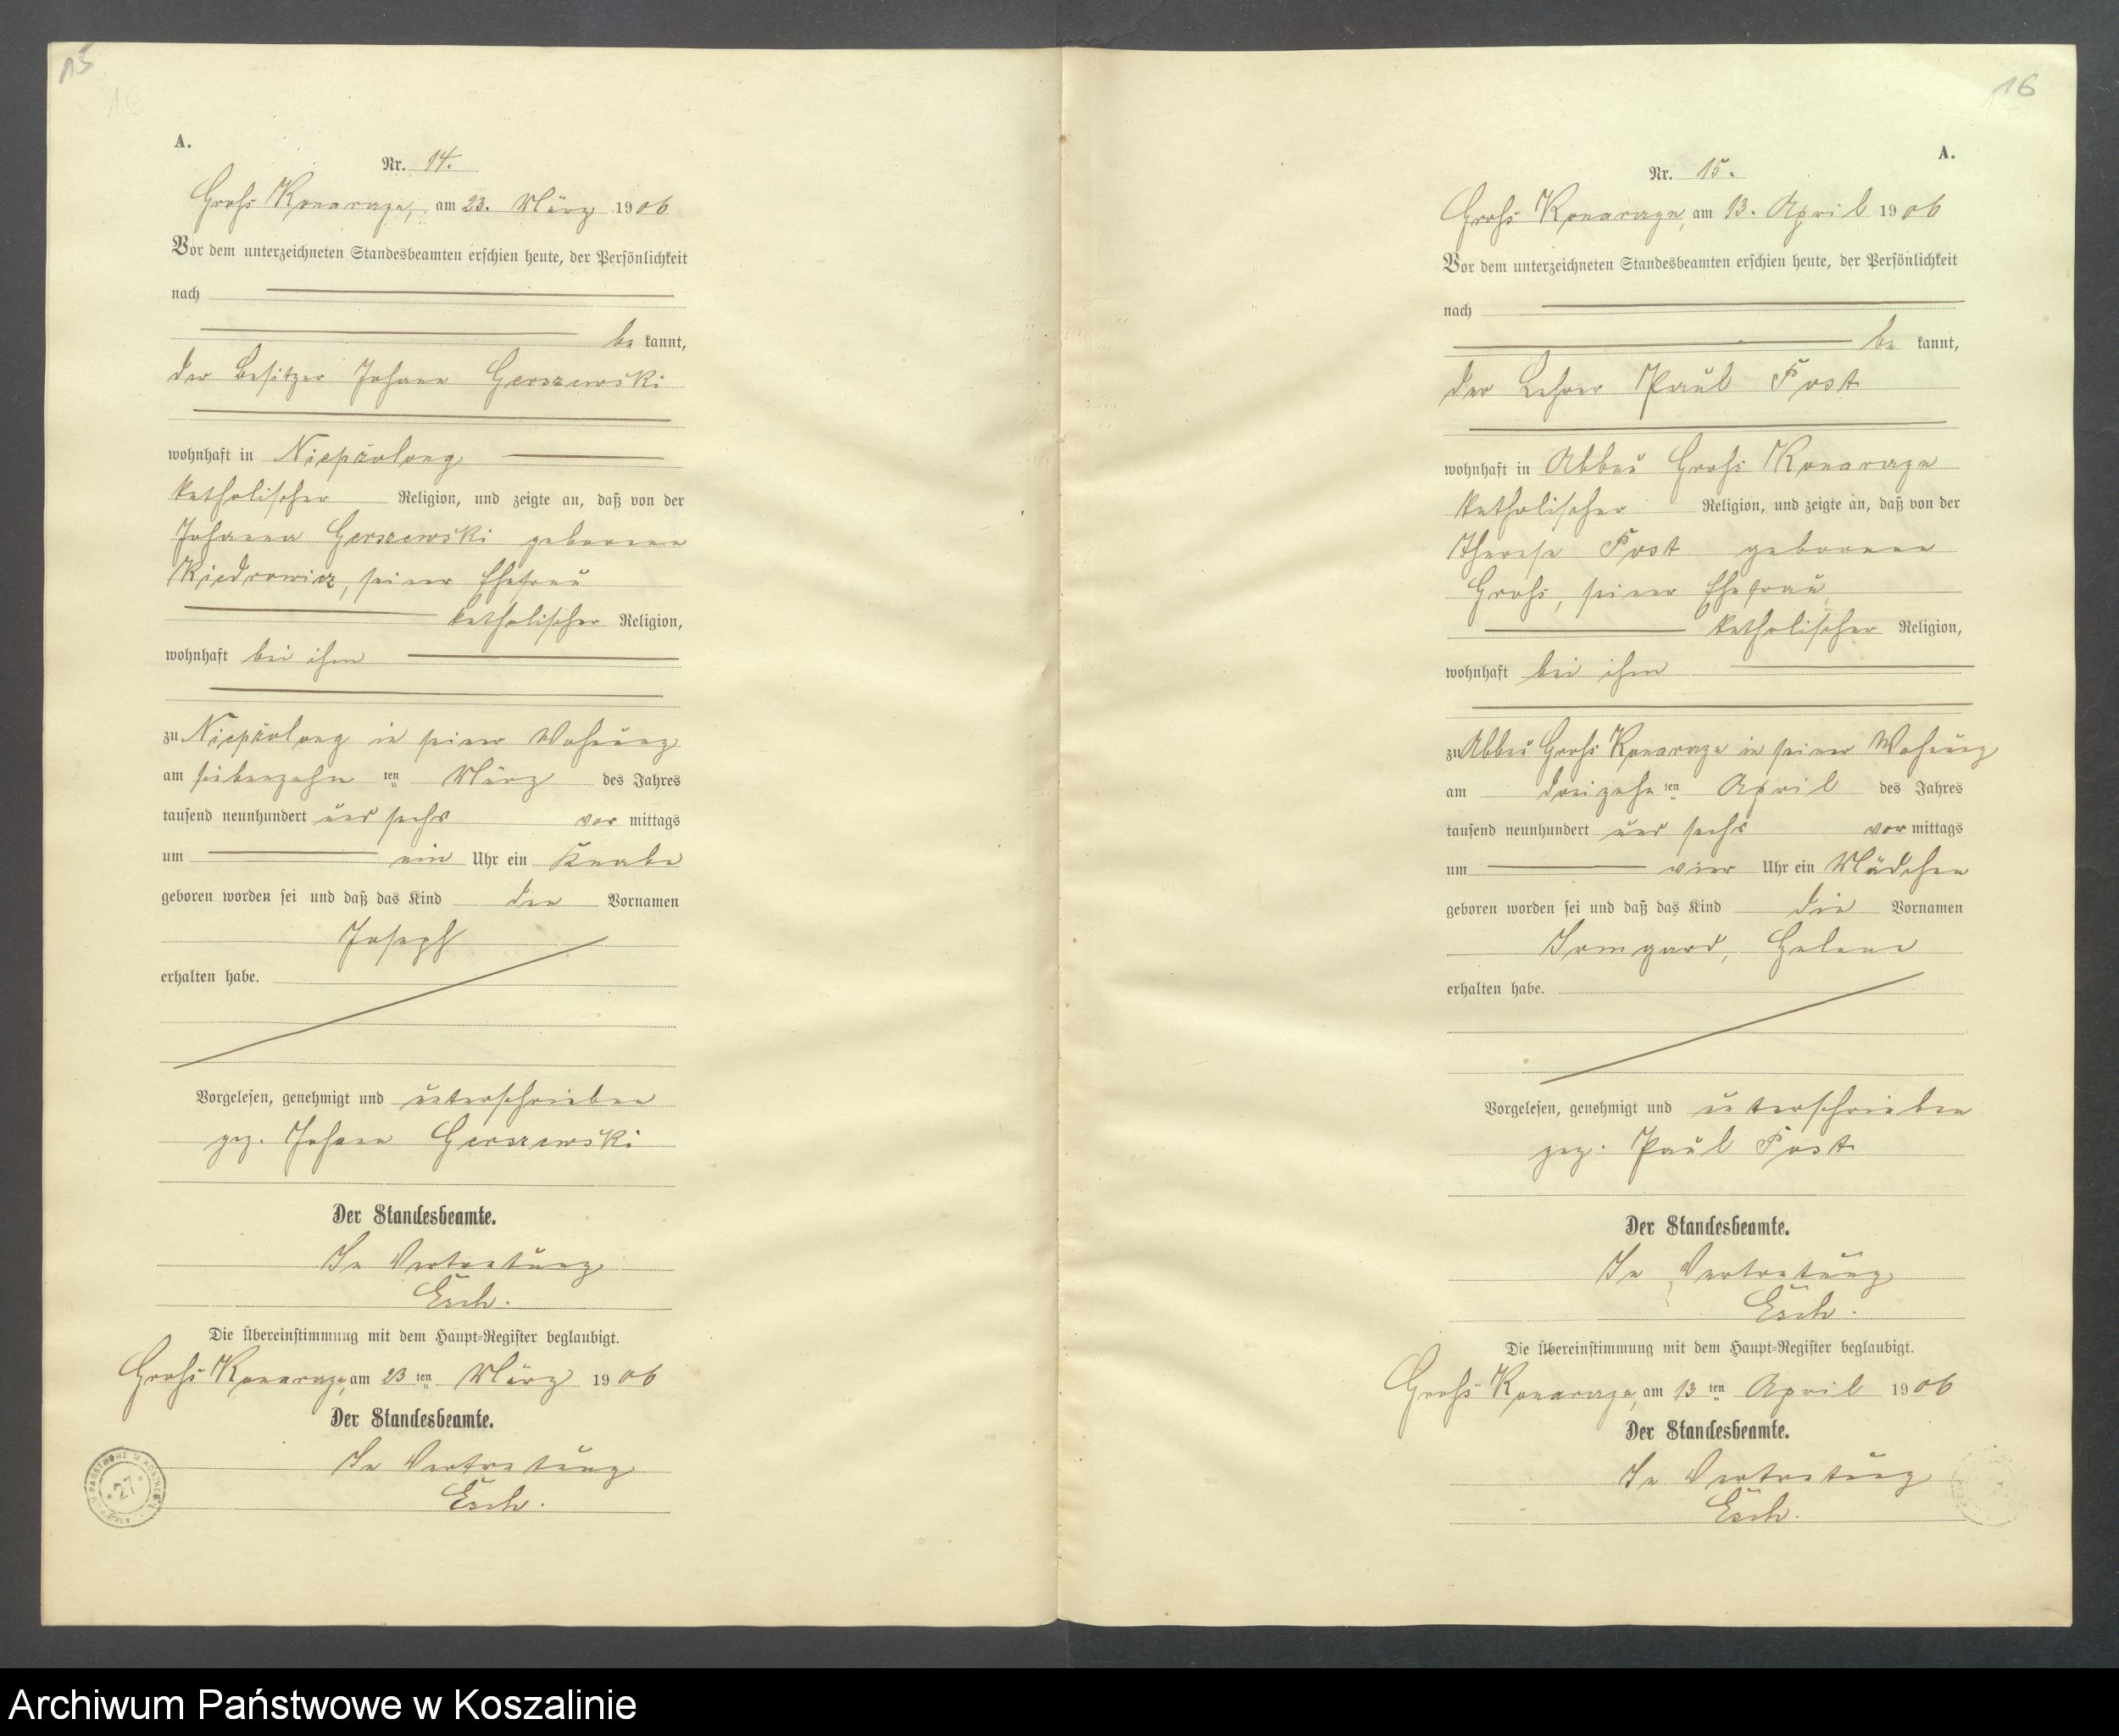 15
16
A.
Nr. 14.
Groß Konarczyn, am 23. März 1906
Vor dem unterzeichneten Standesbeamten erschien heute, der Persönlichkeit
nach
be kannt,
der Besitzer Johann Gerszewski
wohnhaft in
katholischer Religion, und zeigte an, daß von der
Johanna Gerszewski geborenen
Kiedrowicz, seiner Ehefrau
katholischer Religion,
wohnhaft bei ihm
zu in seiner Wohnung
am siebenzehn ten März des Jahres
tausend neunhundert und sechs vor mittags
um ein Uhr ein Knabe
geboren worden sei und daß das Kind den Vornamen
Joseph
erhalten habe.
Vorgelesen, genehmigt und unterschrieben
gez. Johann Gerszewski
Der Standesbeamte.
In Vertretung
Esch.
Die Übereinstimmung mit dem Haupt-Register beglaubigt.
Groß Konarczyn, am 23 ten März 1906
Der Standesbeamte.
In Vertretung
Esch.
27
16
A.
Nr. 15.
Groß Konarczyn, am 13. April 1906
Vor dem unterzeichneten Standesbeamten erschien heute, der Persönlichkeit
nach
be kannt,
der Lehrer Paul Post
wohnhaft in Abbau Groß Konarczyn
katholischer Religion, und zeigte an, daß von der
Therese Post geborenen
Groß, seiner Ehefrau,
katholischer Religion,
wohnhaft bei ihm
zu Abbau Groß Konarczyn in seiner Wohnung
am dreizehn ten April des Jahres
tausend neunhundert und sechs vor mittags
um vier Uhr ein Mädchen
geboren worden sei und daß das Kind die Vornamen
Irmgard, Helene
erhalten habe.
Vorgelesen, genehmigt und unterschrieben
gez. Paul Post
Der Standesbeamte.
In Vertretung
Esch.
Die Übereinstimmung mit dem Haupt-Register beglaubigt.
Groß Konarczyn, am 13 ten April 1906
Der Standesbeamte.
In Vertretung
Esch.
Archiwum Państwowe w Koszalinie